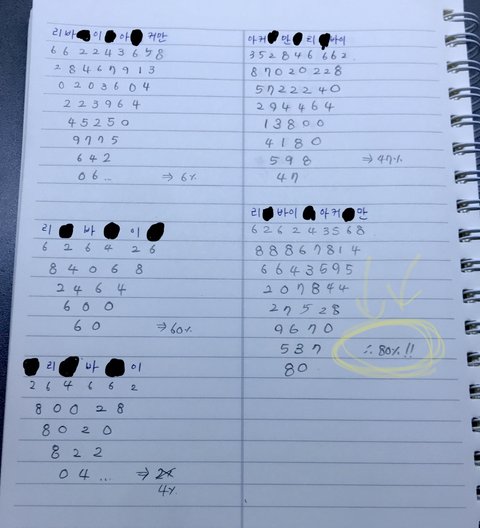 리 바 이 아 커만
6 6 2 2 4 3 6 5 8
2 8 4 6 7 9 1 3
0 2 0 3 6 0 4
2 2 3 9 6 4
4 5 2 5 0
9 7 7 5
6 4 2
0 6 .. ⇒ 6%
리 바 이
6 2 6 4 2 6
8 4 0 6 8
2 4 6 4
6 0 0
6 0 ⇒ 60%
리 바 이
2 6 4 6 6 2
8 0 0 2 8
8 0 2 0
8 2 2
0 4 .. ⇒ 2%
4%
아커 만 리 바이
3 5 2 8 4 6 6 6 2
8 7 0 2 0 2 2 8
5 7 2 2 2 4 0
2 9 4 4 6 4
1 3 8 0 0
4 1 8 0
5 9 8 ⇒ 47%
4 7
리 바이 아커 만
6 2 6 2 4 3 5 6 8
8 8 8 6 7 8 1 4
6 6 4 3 5 9 5
2 0 7 8 4 4
2 7 5 2 8
9 6 7 0
5 3 7 ∴ 80% !!
8 0